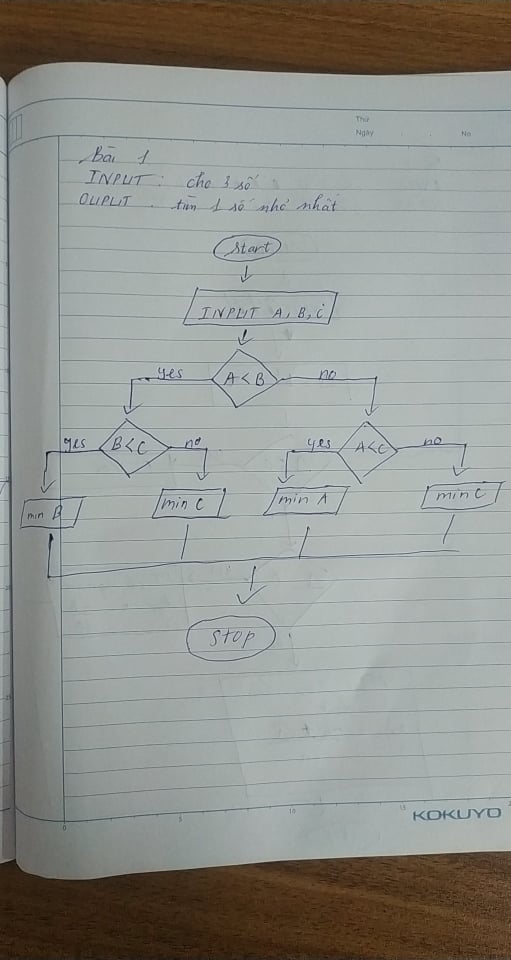 Thứ
Ngày . . No.
Bài 1
INPUT : cho 3 số
OUPUT : tìm 1 số nhỏ nhất
Start
INPUT A, B, C
yes A < B no
yes B < C no yes A < C no
min B min C min A min C
Stop
0 5 10 15
KOKUYO